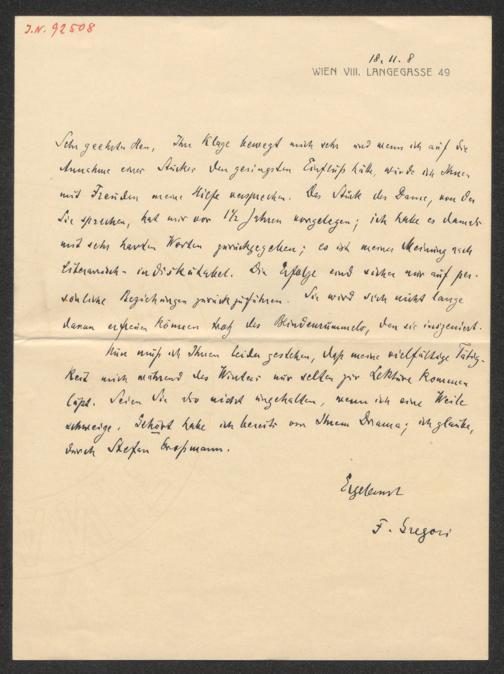 J.N. 92508
18. 11. 8
WIEN VIII. LANGEGASSE 49
Sehr geehrter Herr, Ihre Klage bewegt mich sehr und wenn ich auf die
Annahme eines Stückes den geringsten Einfluß hätte, würde ich Ihnen
mit Freuden meine Hilfe versprechen. Das Stück der Dame, von der
Sie sprechen, hat mir vor 1½ Jahren vorgelegen; ich habe es damals
mit sehr harten Worten zurückgegeben; es ist meiner Meinung nach
literarisch indiskutabel. Die Erfolge sind sicher nur auf per-
sönliche Beziehungen zurückzuführen. Sie wird sich nicht lange
daran erfreuen können trotz des Blindenrummels, den sie insgeniert.
Nun muß ich Ihnen leider gestehen, daß meine vielfältige Tätig-
keit mich während des Winters nur selten zur Lektüre kommen
läßt. Seien Sie also nicht ungehalten, wenn ich eine Weile
schweige. Gehört habe ich bereits von Ihrem Drama; ich glaube,
durch Stefan Großmann.
Ergebenst
F. Gregori